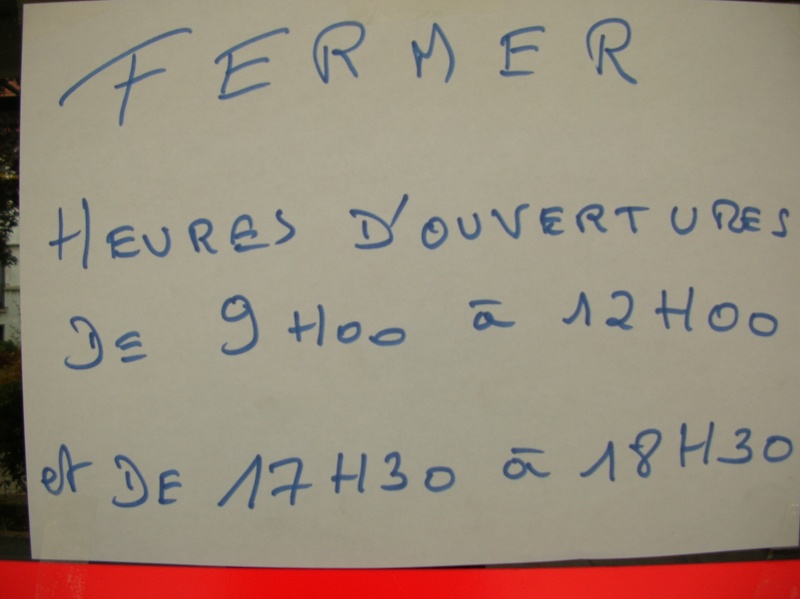 FERMER
HEURES D'OUVERTURES
DE 9H00 à 12H00
et DE 17H30 à 18H30